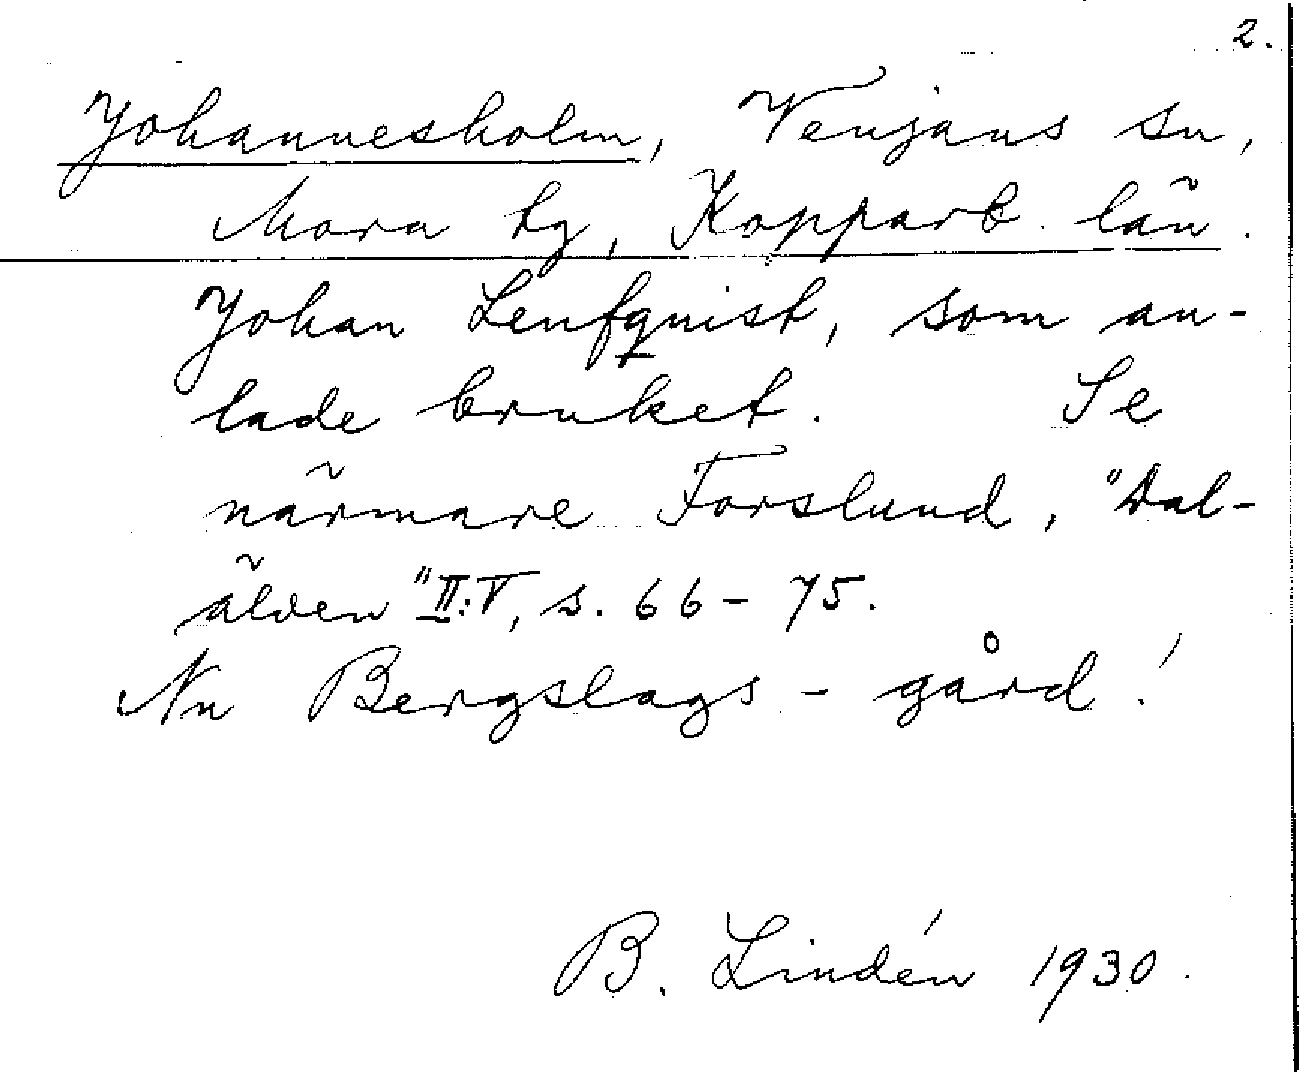 2.
Johannesholm, Venjans sn,
Mora tg, Kopparb. län.
Johan Lenfquist, som an-
lade bruket. Se
närmare Forslund, "Dal-
älven" II:V, s. 66-75.
Nu Bergslags-gård!
B. Lindén 1930.